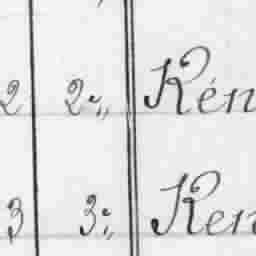 2 2„ Kén
3 3„ Ken